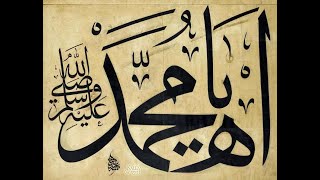 اه يا محمد
صلى الله عليه وسلم